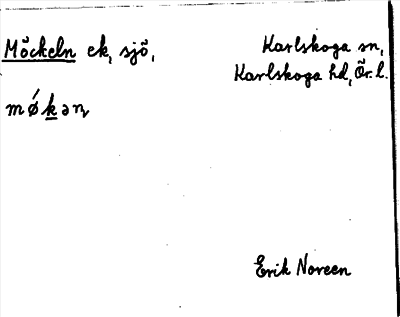 Möckeln ek, sjö,
Karlskoga sn,
Karlskoga hd, Ör. l.
mǿkəɳ
Erik Noreen